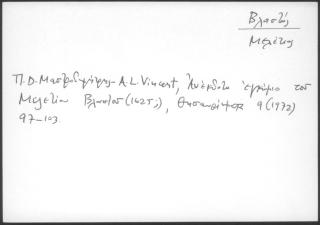 Βλαστός
Μελέτιος
Π.Δ. Μαστροδημήτρης - A. L. Vincent, Ἀνέκδοτο ἔγγραφο τοῦ
Μελετίου Βλαστοῦ (1625;), Θησαυρίσματα 9 (1972)
97-103